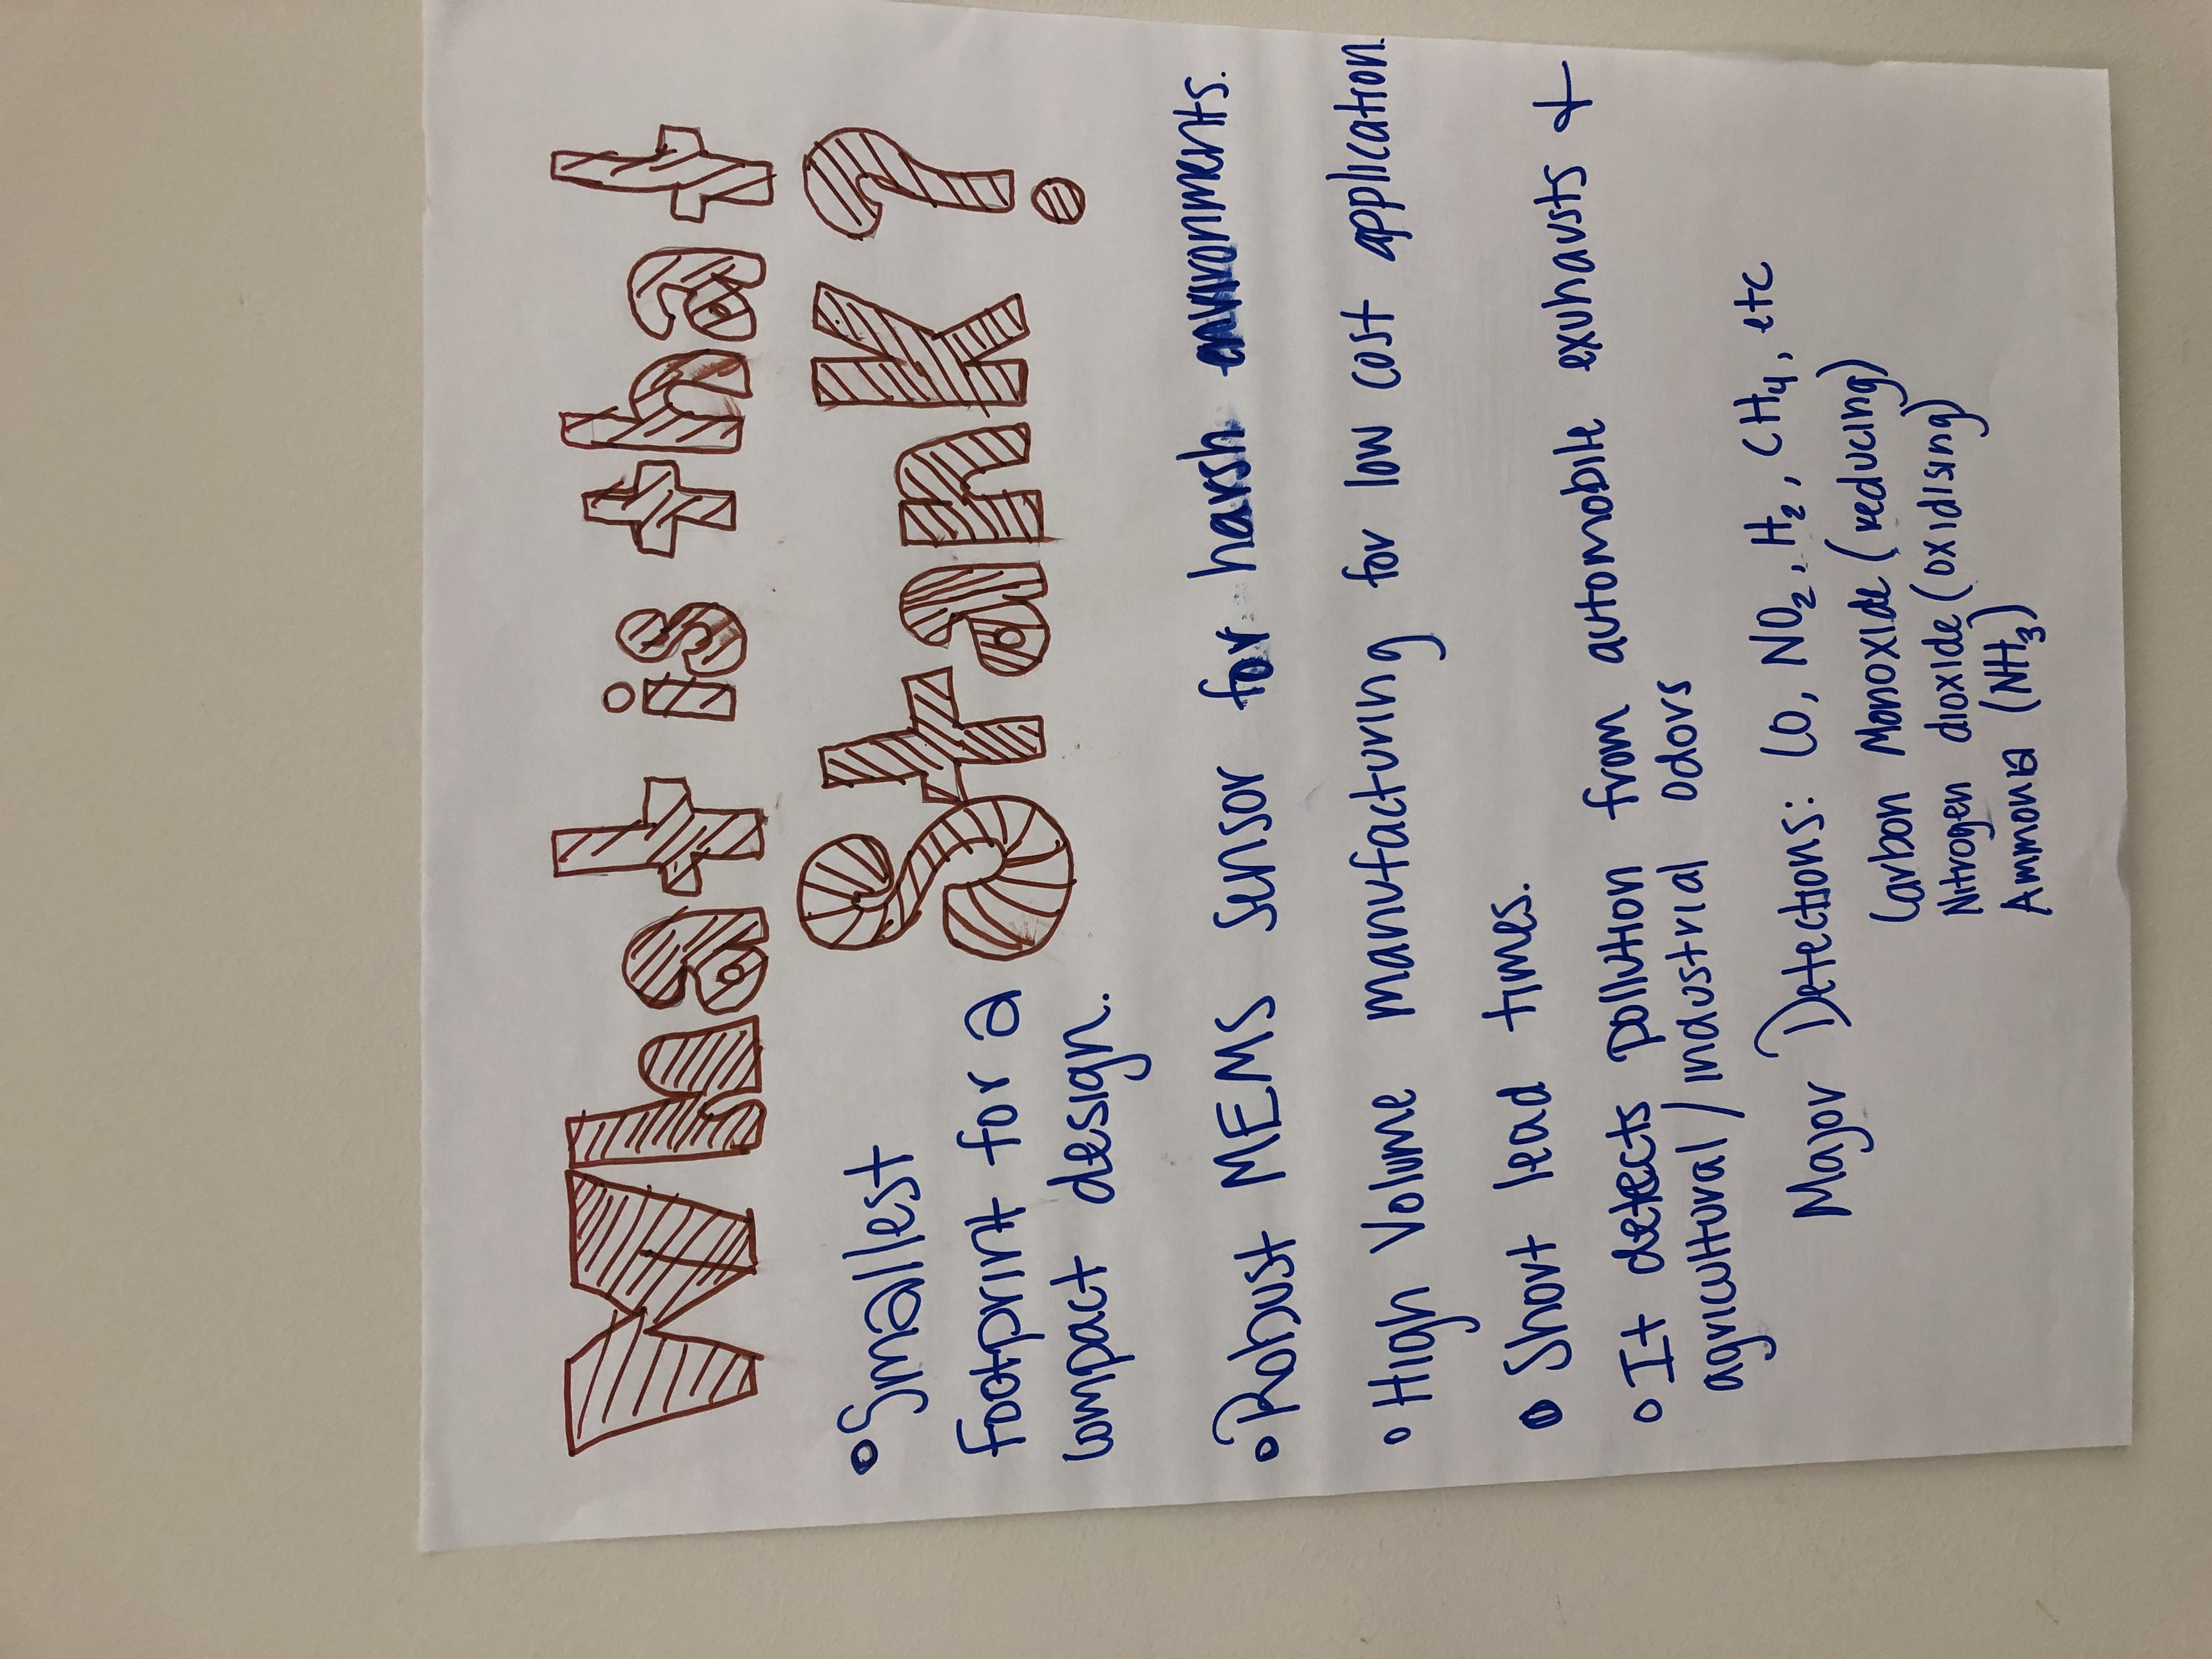 What is that
Stank?
• Smallest
footprint for a
compact design.
• Robust MEMS sensor for harsh environments.
• High Volume manufacturing for low cost application.
• Short lead times.
• It detects pollution from automobile exuhausts +
agricultural/industrial odors
Major Detections: CO, NO2, H2, CH4, etc
Carbon Monoxide (reducing)
Nitrogen dioxide (oxidising)
Ammonia (NH3)